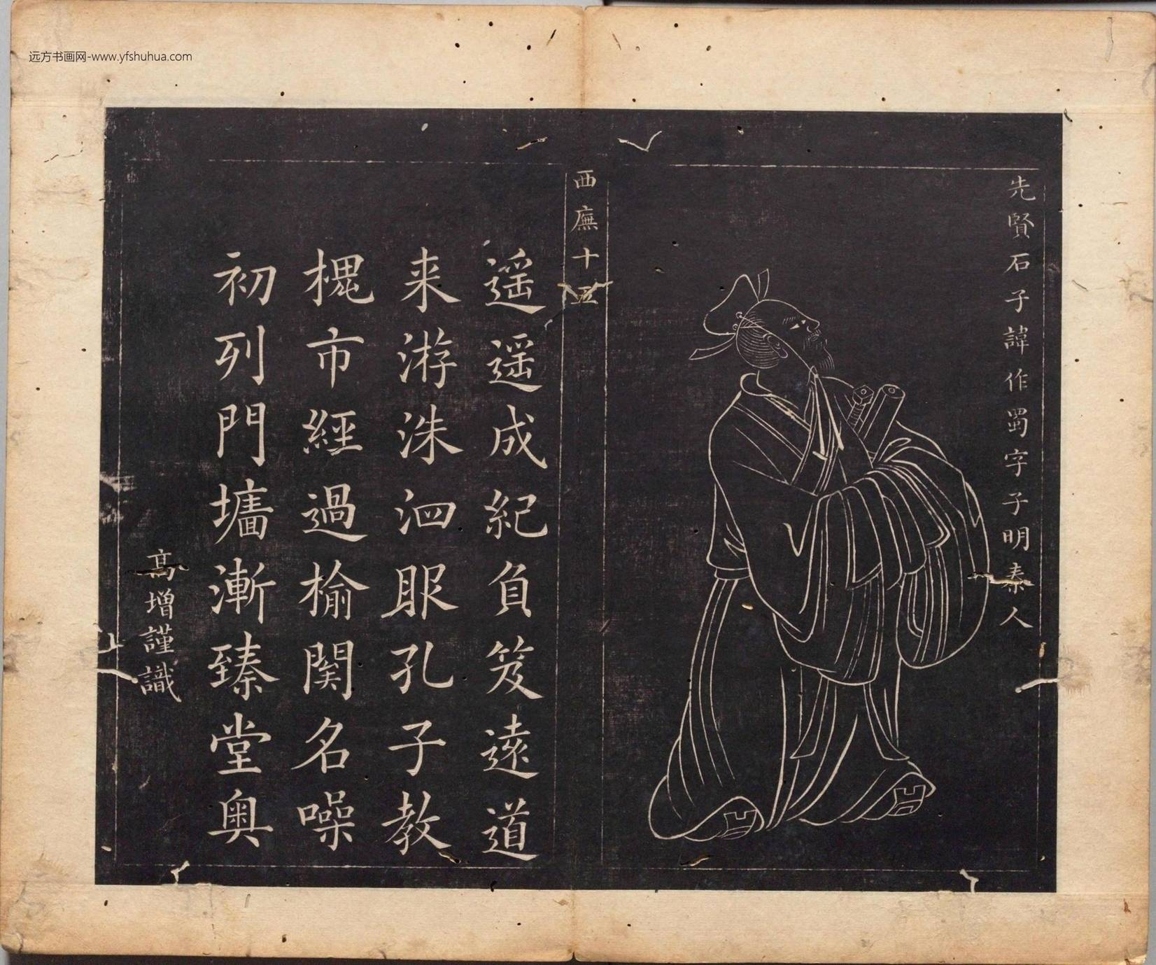 远方书画网-www.yfshuhua.com
先賢石子諱作蜀字子明秦人
西廡十五
遥遥成紀負笈遠道
来游洙泗服孔子教
槐市經過榆関名噪
初列門墻漸臻堂奥
高增謹識